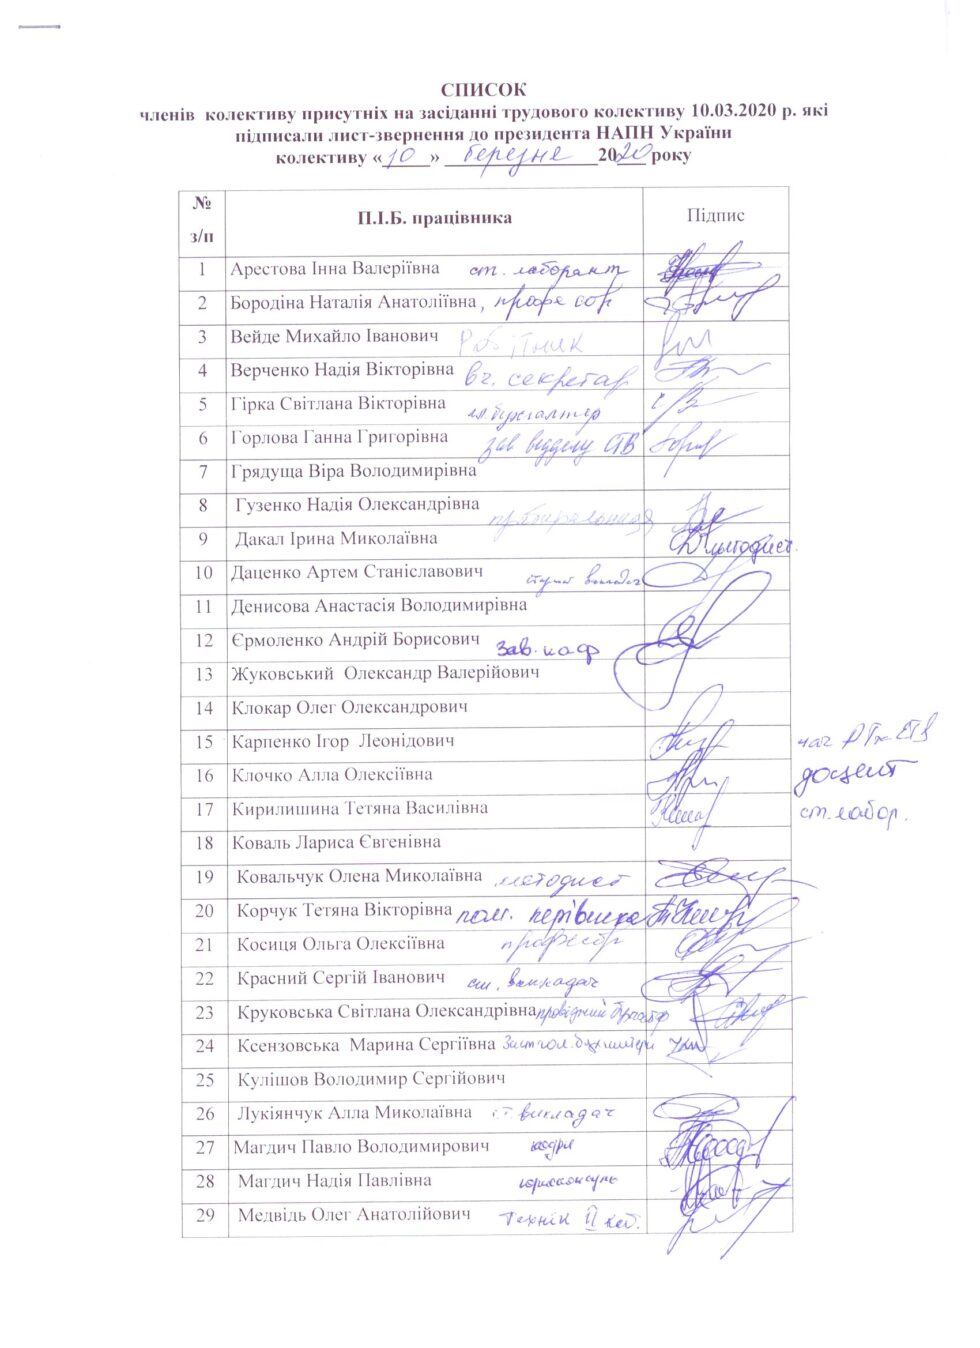 СПИСОК
членів колективу присутніх на засіданні трудового колективу 10.03.2020 р. які
підписали лист-звернення до президента НАПН України
колективу « 10 » березня 2020 року
№ з/п П.І.Б. працівника Підпис
1 Арестова Інна Валеріївна ст. лаборант
2 Бородіна Наталія Анатоліївна, професор
3 Вейде Михайло Іванович Робітник
4 Верченко Надія Вікторівна вч. секретар
5 Гірка Світлана Вікторівна гл. бухгалтер
6 Горлова Ганна Григорівна зав відділу СТВ
7 Грядуща Віра Володимирівна
8 Гузенко Надія Олександрівна
9 Дакал Ірина Миколаївна методист.
10 Даценко Артем Станіславович
11 Денисова Анастасія Володимирівна
12 Єрмоленко Андрій Борисович Зав. каф
13 Жуковський Олександр Валерійович
14 Клокар Олег Олександрович
15 Карпенко Ігор Леонідович
16 Клочко Алла Олексіївна доцент
17 Кирилишина Тетяна Василівна ст. лабор.
18 Коваль Лариса Євгенівна
19 Ковальчук Олена Миколаївна методист
20 Корчук Тетяна Вікторівна пом. керівника
21 Косиця Ольга Олексіївна професор
22 Красний Сергій Іванович ст. викладач
23 Круковська Світлана Олександрівна провідний бухгалтер
24 Ксензовська Марина Сергіївна Заст гол. бухгалтера
25 Кулішов Володимир Сергійович
26 Лукіянчук Алла Миколаївна ст. викладач
27 Магдич Павло Володимирович
28 Магдич Надія Павлівна юрисконсульт
29 Медвідь Олег Анатолійович Технік II кат.